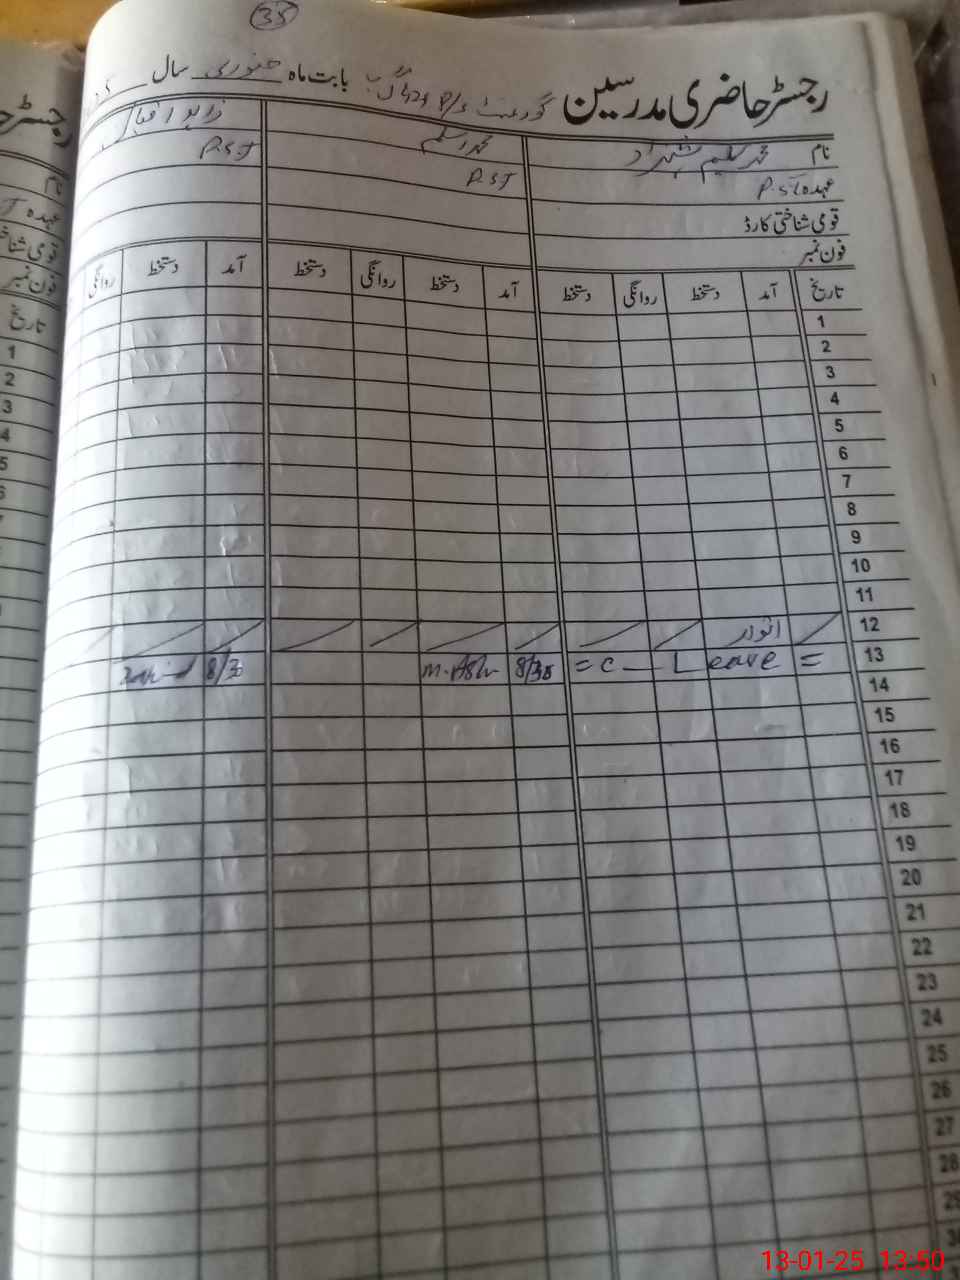 35
رجسٹر حاضری مدرسین گورنمنٹ بابت ماہ جنوری سال
نام محمد سلیم شہزاد محمد اسلم زاہد اقبال
عہدہ P.S.T P.S.T P.S.T
قومی شناختی کارڈ
فون نمبر
تاریخ آمد دستخط روانگی دستخط آمد دستخط روانگی دستخط آمد دستخط روانگی
1
2
3
4
5
6
7
8
9
10
11
12 اتوار
13 = C — Leave = 8/30 8/30
14
15
16
17
18
19
20
21
22
23
24
25
26
27
28
29
نام
عہدہ
فون نمبر
تاریخ
1
2
3
4
5
6
13-01-25 13:50